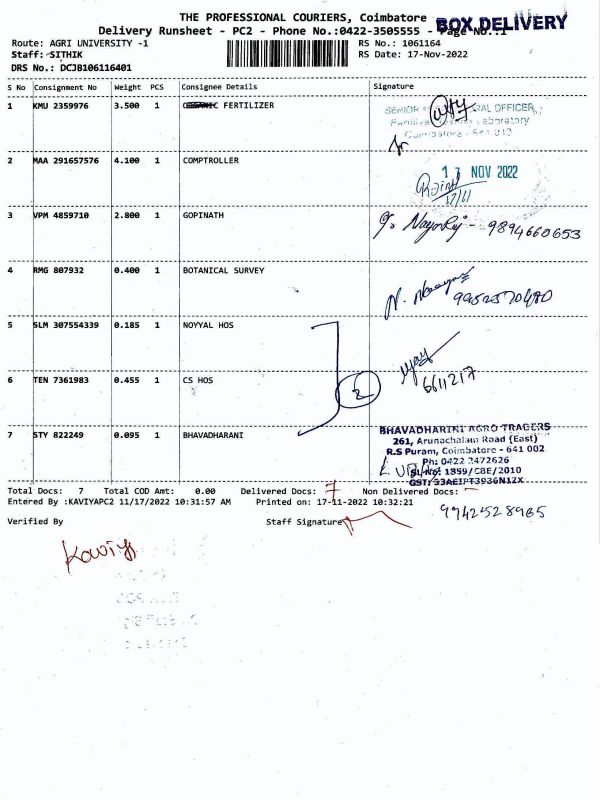 THE PROFESSIONAL COURIERS, Coimbatore
BOX DELIVERY
Delivery Runsheet - PC2 - Phone No.:0422-3505555 - Page No.:1
Route: AGRI UNIVERSITY -1 RS No.: 1061164
Staff: SITHIK RS Date: 17-Nov-2022
DRS No.: DCJB106116401
S No Consignment No Weight PCS Consignee Details Signature
1 KMU 2359976 3.500 1 FERTILIZER
SENIOR OFFICER
Laboratory
Coimbatore - 641 013
2 MAA 291657576 4.100 1 COMPTROLLER
17 NOV 2022
3 VPM 4859710 2.800 1 GOPINATH
9894660653
4 RMG 807932 0.400 1 BOTANICAL SURVEY
5 SLM 307554339 0.185 1 NOYYAL HOS
6 TEN 7361983 0.455 1 CS HOS
2
6611217
7 STY 822249 0.095 1 BHAVADHARANI
BHAVADHARINI AGRO TRADERS
261, Arunachalam Road (East)
R.S Puram, Coimbatore - 641 002
Ph: 0422 2472626
1859/CBE/2010
GST: 33AEIPT3936N1ZX
Total Docs: 7 Total COD Amt: 0.00 Delivered Docs: 7 Non Delivered Docs: -
Entered By :KAVIYAPC2 11/17/2022 10:31:57 AM Printed on: 17-11-2022 10:32:21
9942528965
Verified By Staff Signature
Kaviya